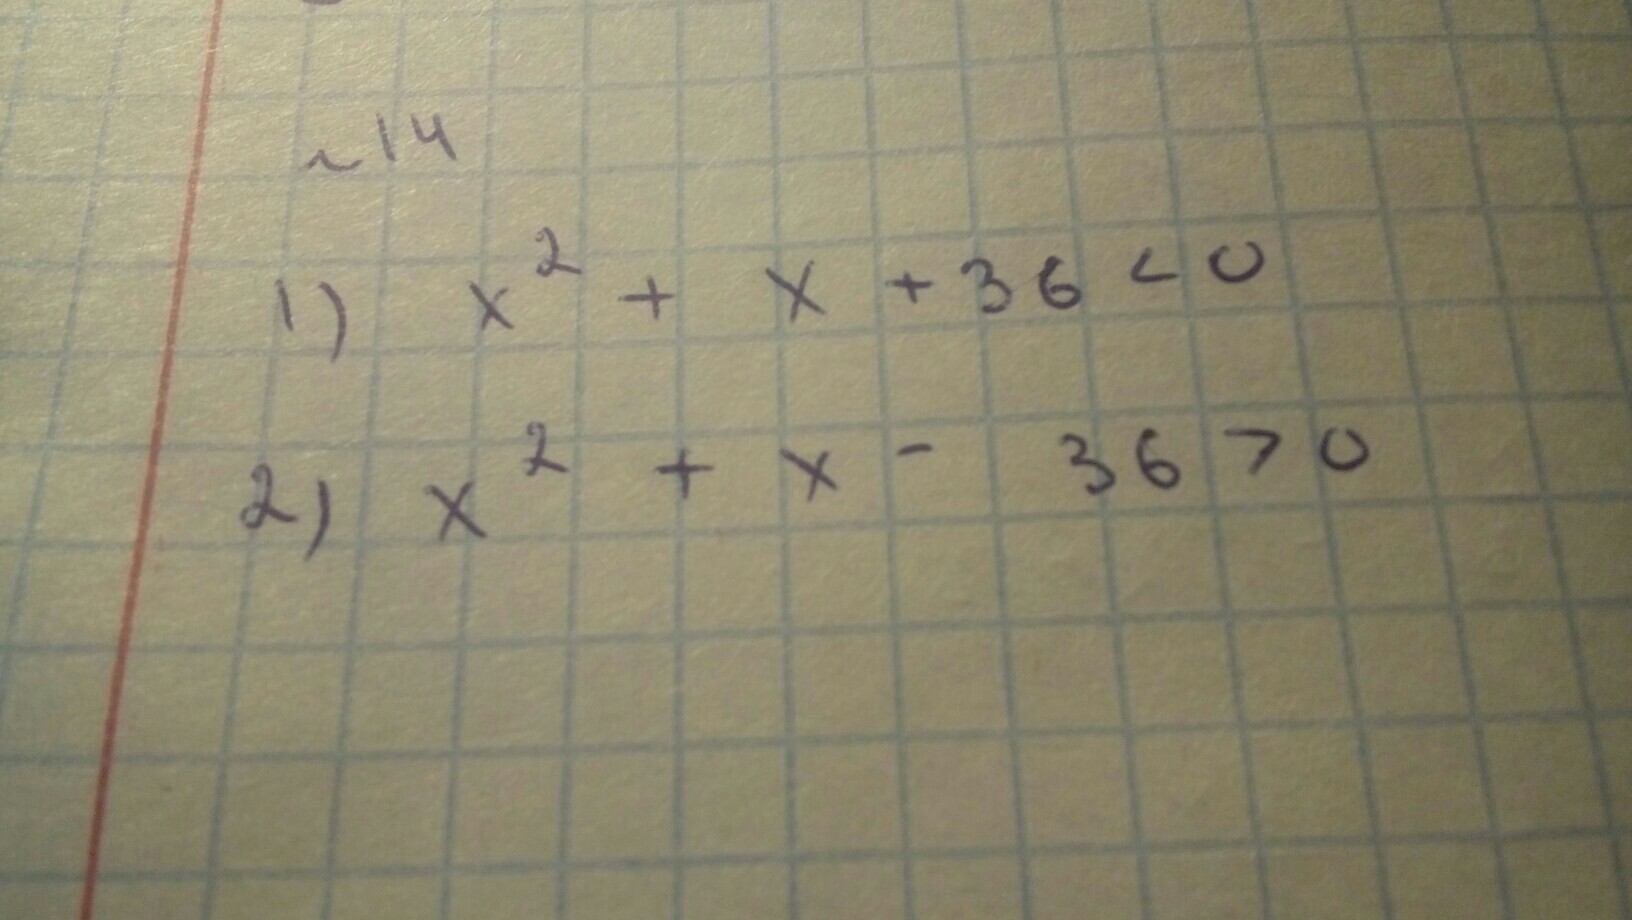 ~14
1) x² + x + 36 < 0
2) x² + x - 36 > 0